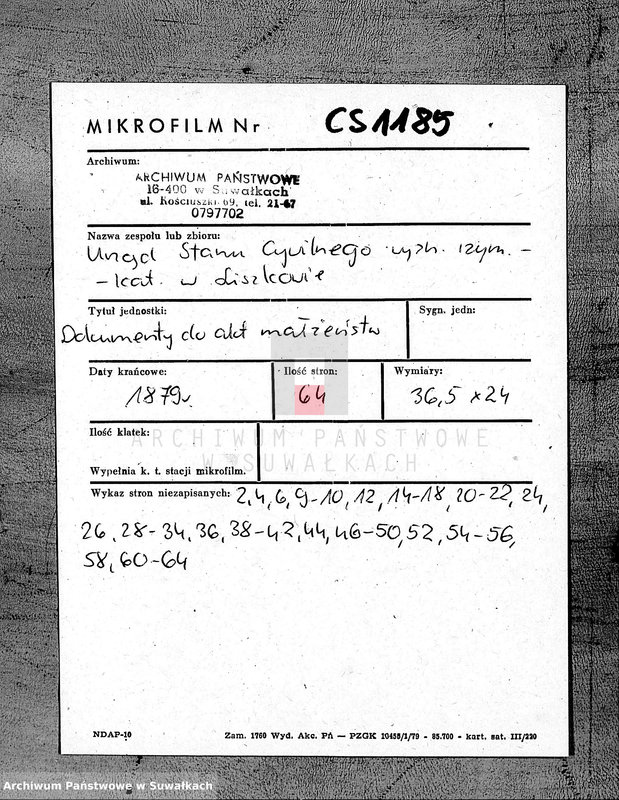 MIKROFILM Nr CS1185
Archiwum:
ARCHIWUM PAŃSTWOWE
16-400 w Suwałkach
ul. Kościuszki 69, tel. 21-67
0797702
Nazwa zespołu lub zbioru:
Urząd Stanu Cywilnego wyzn. rzym. -
- kat. w Liszkowie
Tytuł jednostki:
Sygn. jedn:
Dokumenty do akt małżeństw
Daty krańcowe:
Ilość stron:
Wymiary:
1879r.
64
36,5 x 24
Ilość klatek:
ARCHIWUM PAŃSTWOWE
W SUWAŁKACH
Wypełnia k. t. stacji mikrofilm.
Wykaz stron niezapisanych: 2,4,6,9-10,12,14-18,20-22,24,
26,28-34,36,38-42,44,46-50,52,54-56,
58,60-64
NDAP-10
Zam. 1760 Wyd. Akc. Pń — PZGK 10458/1/79 - 85.700 - kart. sat. III/220
Archiwum Państwowe w Suwałkach